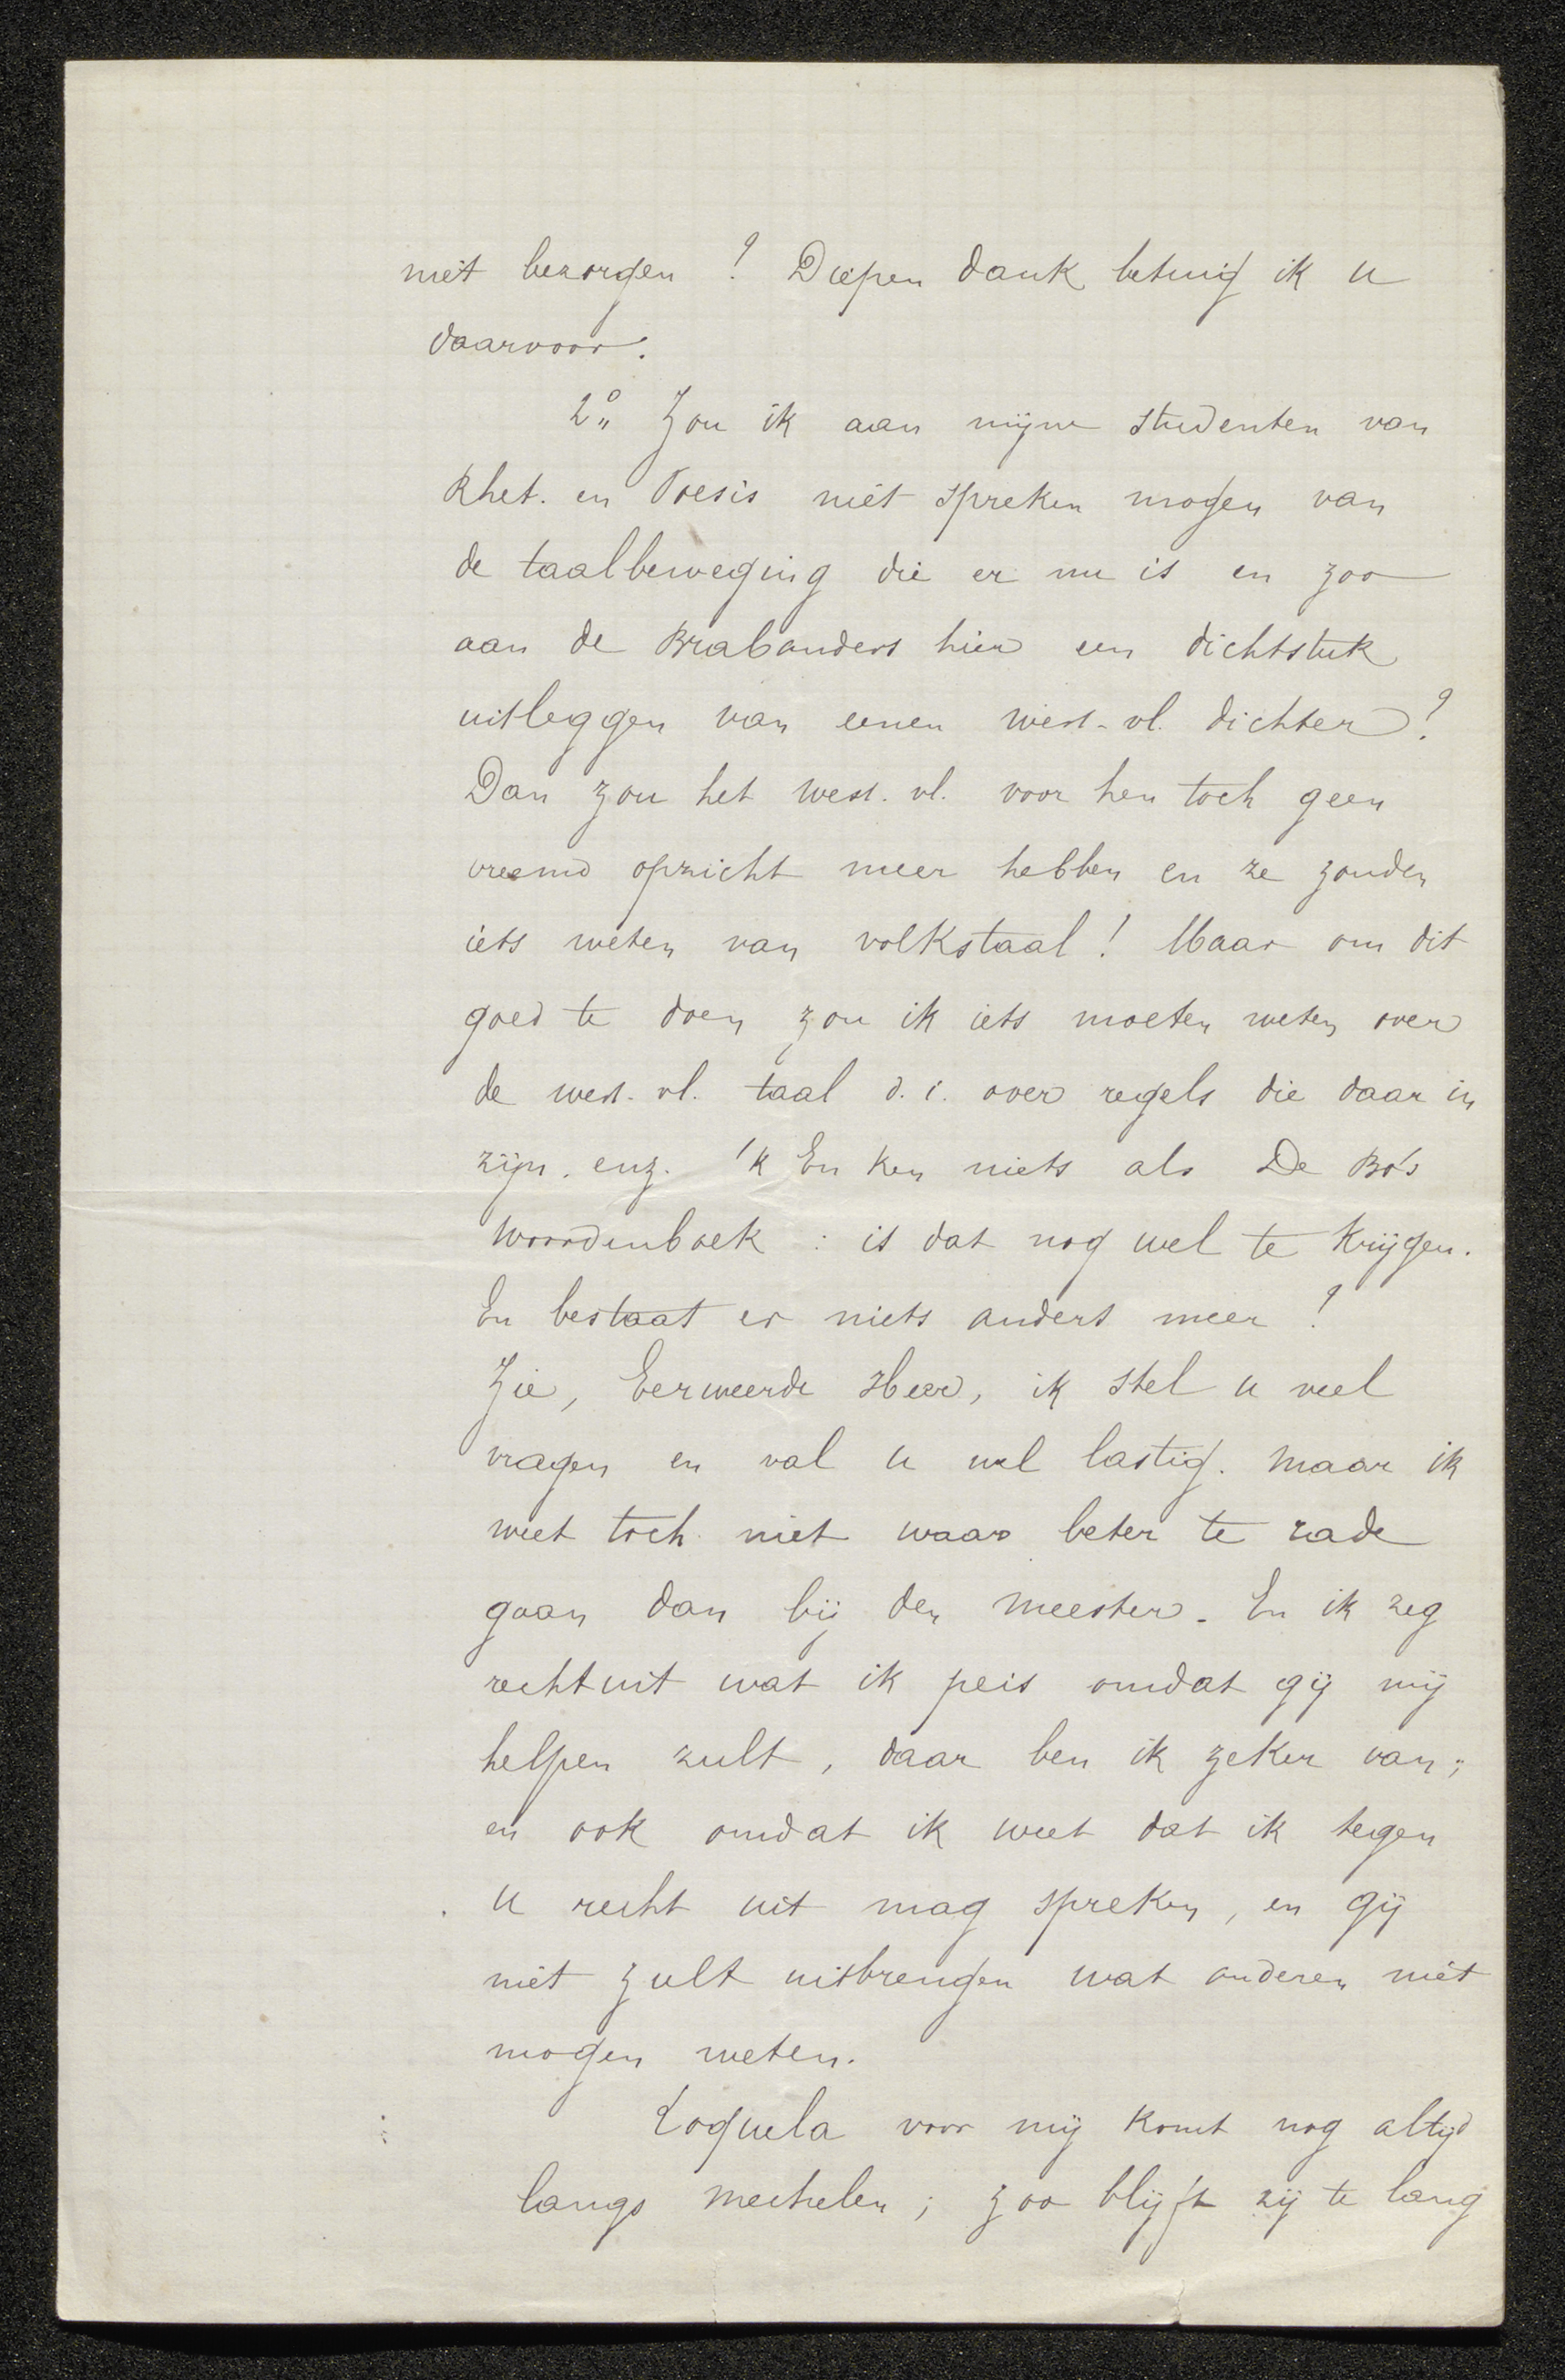 niet bezorgen ? Diepen dank betuig ik u
daarvoor.
2° Zou ik aan mijne studenten van
Rhet. en Poesis niet spreken mogen van
de taalbeweging die er nu is en zoo
aan de Brabanders hier een dichtstuk
uitleggen van eenen west-vl. dichter ?
Dan zou het west. vl. voor hen toch geen
vreemd opzicht meer hebben en ze zouden
iets weten van volkstaal ! Maar om dit
goed te doen zou ik iets moeten weten over
de west-vl. taal d. i. over regels die daar in
zijn. enz. 'k En ken niets als De Bo's
Woordenboek : is dat nog wel te krijgen.
En bestaat er niets anders meer ?
Zie, Eerweerde Heer, ik stel u veel
vragen en val u wel lastig. maar ik
weet toch niet waar beter te rade
gaan dan bij den meester. En ik zeg
rechtuit wat ik peis omdat gij mij
helpen zult, daar ben ik zeker van;
en ook omdat ik weet dat ik tegen
u recht uit mag spreken, en gij
niet zult uitbrengen wat anderen niet
mogen weten.
Loquela voor mij komt nog altijd
langs Mechelen ; zoo blijft zij te lang